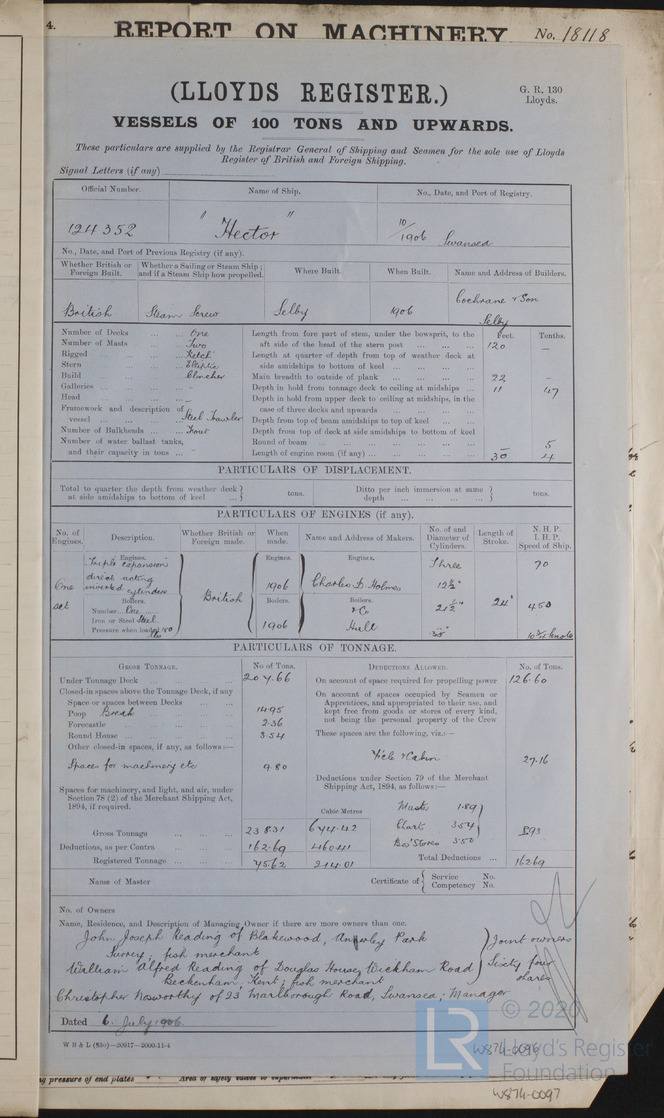 4. REPORT ON MACHINERY No. 18118
(LLOYDS REGISTER.)
G. R. 130
Lloyds.
VESSELS OF 100 TONS AND UPWARDS.
These particulars are supplied by the Registrar General of Shipping and Seamen for the sole use of Lloyds
Register of British and Foreign Shipping.
Signal Letters (if any)
Official Number. Name of Ship. No., Date, and Port of Registry.
124352 "Hector" 10/1906 Swansea
No., Date, and Port of Previous Registry (if any).
Whether British or Foreign Built. Whether a Sailing or Steam Ship; and if a Steam Ship how propelled. Where Built. When Built. Name and Address of Builders.
British Steam Screw Selby 1906 Cochrane & Son
Selby
Number of Decks ... ... One
Number of Masts ... ... Two
Rigged ... ... Ketch
Stern ... ... Elliptic
Build ... ... Clincher
Galleries ... ... –
Head ... ... –
Framework and description of vessel ... ... Steel Trawler
Number of Bulkheads ... Four
Number of water ballast tanks,
and their capacity in tons ... –
Feet. Tenths.
Length from fore part of stem, under the bowsprit, to the
aft side of the head of the stern post ... ... ... 120 –
Length at quarter of depth from top of weather deck at
side amidships to bottom of keel ... ... ...
Main breadth to outside of plank ... ... ... 22 –
Depth in hold from tonnage deck to ceiling at midships ... 11 47
Depth in hold from upper deck to ceiling at midships, in the
case of three decks and upwards ... ... ...
Depth from top of beam amidships to top of keel ... ...
Depth from top of deck at side amidships to bottom of keel
Round of beam ... ... ... – 5
Length of engine room (if any) ... ... ... 30 4
PARTICULARS OF DISPLACEMENT.
Total to quarter the depth from weather deck at side amidships to bottom of keel ... } tons. Ditto per inch immersion at same depth ... ... } tons.
PARTICULARS OF ENGINES (if any).
No. of Engines. Description. Whether British or Foreign made. When made. Name and Address of Makers. No. of and Diameter of Cylinders. Length of Stroke. N. H. P. I. H. P. Speed of Ship.
Engines. Engines. Engines.
Triple expansion Three 70
direct acting
One inverted cylinders 1906 Charles D. Holmes 12½"
set Boilers. British Boilers. Boilers.
Number... One & Co 21½" 24" 450
Iron or Steel Steel
Pressure when loaded 180 lbs 1906 Hull 35" knots
PARTICULARS OF TONNAGE.
GROSS TONNAGE. No of Tons.
Under Tonnage Deck ... ... 207.66
Closed-in spaces above the Tonnage Deck, if any
Space or spaces between Decks ... ...
Poop Break ... ... 14.95
Forecastle ... ... 2.36
Round House ... ... 3.54
Other closed-in spaces, if any, as follows:—
Spaces for machinery etc 9.80
Spaces for machinery, and light, and air, under
Section 78 (2) of the Merchant Shipping Act,
1894, if required.
Cubic Metres
Gross Tonnage ... ... 238.31 674.42
Deductions, as per Contra ... ... 162.69 460.41
Registered Tonnage ... ... 75.62 214.01
DEDUCTIONS ALLOWED. No. of Tons.
On account of space required for propelling power 126.60
On account of spaces occupied by Seamen or
Apprentices, and appropriated to their use, and
kept free from goods or stores of every kind,
not being the personal property of the Crew
These spaces are the following, viz.:—
& Cabin 27.16
Deductions under Section 79 of the Merchant
Shipping Act, 1894, as follows:—
Master 1.89
Chart 3.54 8.93
Bos' Stores 3.50
Total Deductions ... 162.69
Name of Master Certificate of { Service No.
Competency No.
No. of Owners
Name, Residence, and Description of Managing Owner if there are more owners than one.
John Joseph Reading of Blakewood, Anerley Park
Surrey, fish merchant } Joint owners
William Alfred Reading of Douglas House, Wickham Road } Sixty four
Beckenham, Kent, fish merchant shares
Christopher Nosworthy of 23 Marlborough Road, Swansea; Manager
Dated 6. July 1906.
W B & L (85o)—20917—2000-11-4
© 2020
LR
Lloyd's Register
Foundation
W874-0096
W874-0097
pressure of end plates
Area of safety valves to